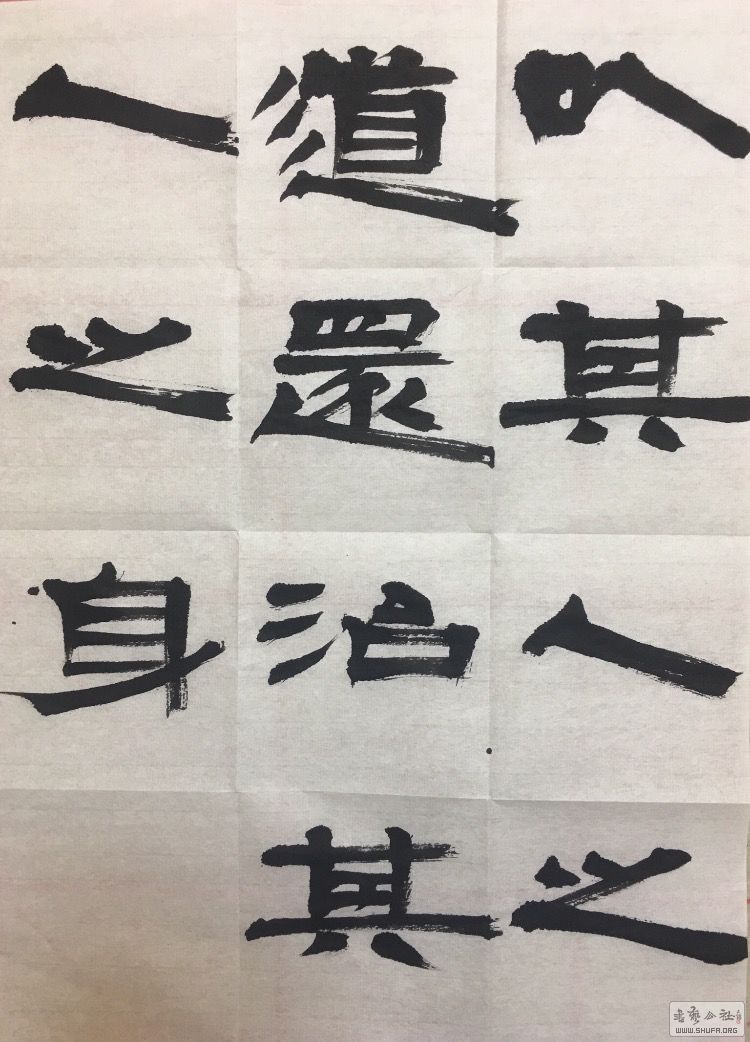 以其人之
道還治其
人之身
書藝公社
WWW.SHUFA.ORG